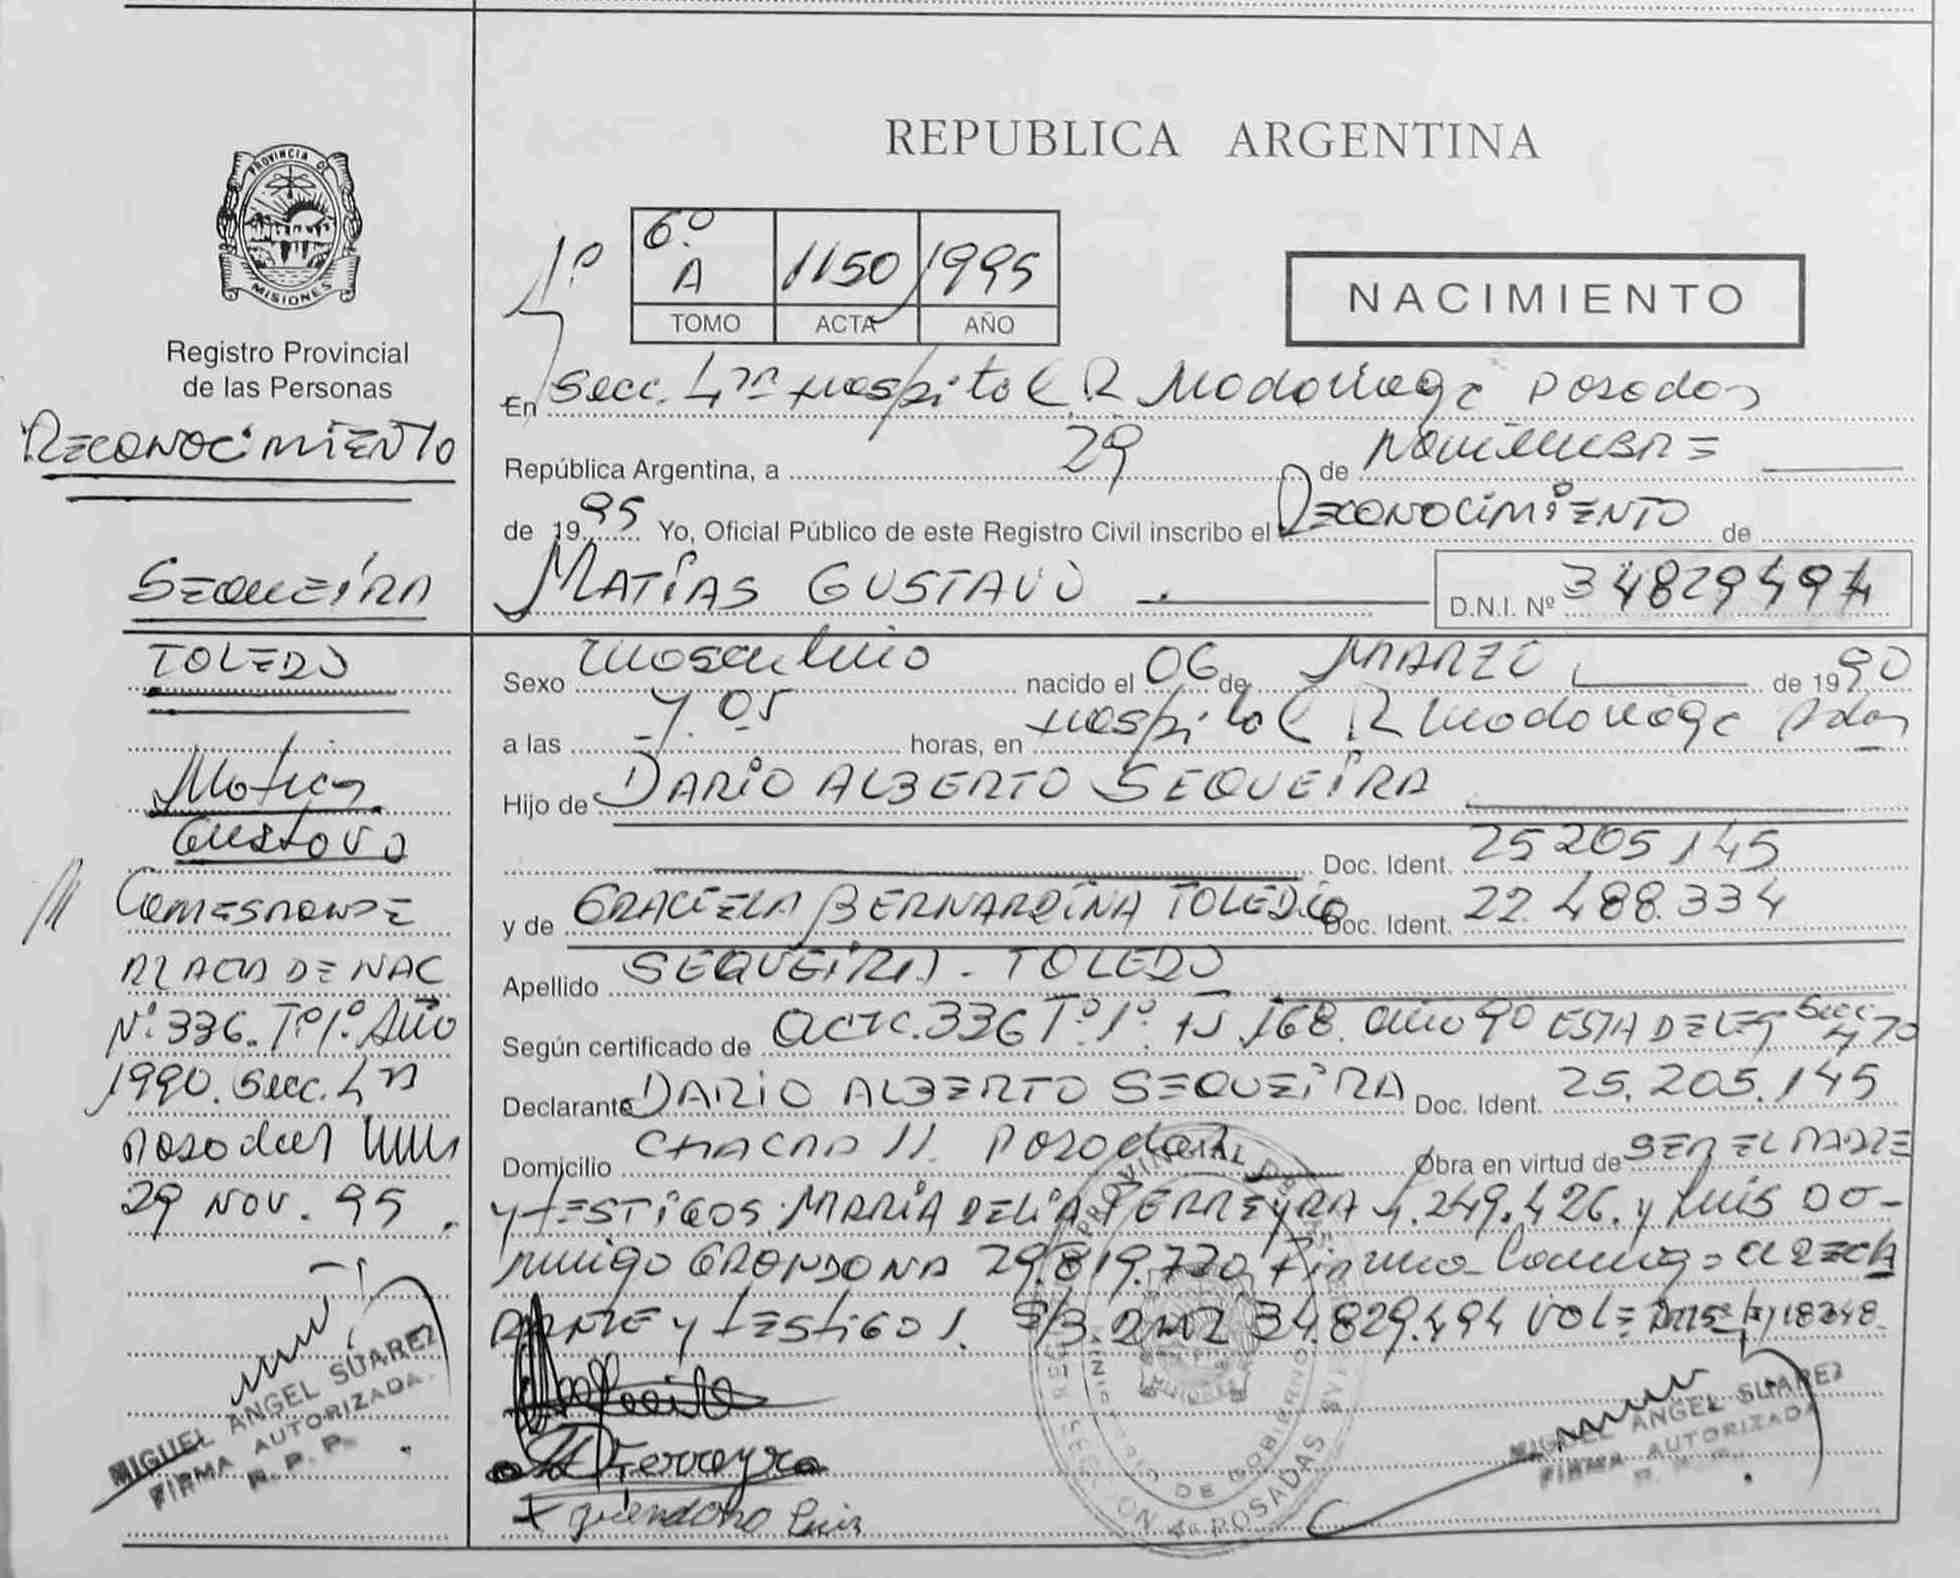 REPUBLICA ARGENTINA
PROVINCIA DE
MISIONES
Registro Provincial
de las Personas
RECONOCIMIENTO
SEQUEIRA
TOLEDO
Matias
Gustavo
Corresponde
al acta de NAC
Nº 336. Tº 1º. Año
1990. Secc. 4ta
Posadas
29 NOV. 95.
MIGUEL ANGEL SUAREZ
FIRMA AUTORIZADA.
R. P. P.
1º
6º A 1150 1995
TOMO ACTA AÑO
NACIMIENTO
En Secc. 4ta Hospital R Madariaga Posadas
República Argentina, a 29 de Noviembre
de 1995 Yo, Oficial Público de este Registro Civil inscribo el RECONOCIMIENTO de
MATIAS GUSTAVO D.N.I. Nº 34829494
Sexo masculino nacido el 06 de MARZO de 1990
a las 7.05 horas, en Hospital R Madariaga Pdas
Hijo de DARIO ALBERTO SEQUEIRA
Doc. Ident. 25205145
y de GRACIELA BERNARDINA TOLEDO Doc. Ident. 22.488.334
Apellido SEQUEIRA - TOLEDO
Según certificado de acta.336 Tº.1º. Fº 168. año 90 ESTA DELEG Secc 4ta
Declarante DARIO ALBERTO SEQUEIRA Doc. Ident. 25.205.145
Domicilio CHACRA 11. Posadas Obra en virtud de SER EL PADRE
y TESTIGOS. MARIA DELIA FERREYRA 4.249.426. y LUIS DO-
mingo GRONDONA 29.819.720 Firma conmigo el DECLA
RANTE y testigos. S/B. DNI 34.829.494 VALE
Ferreyra
Luis
REGISTRO PROVINCIAL DE LAS PERSONAS
MINISTERIO DE GOBIERNO
SECCION 4ta POSADAS
MIGUEL ANGEL SUAREZ
FIRMA AUTORIZADA